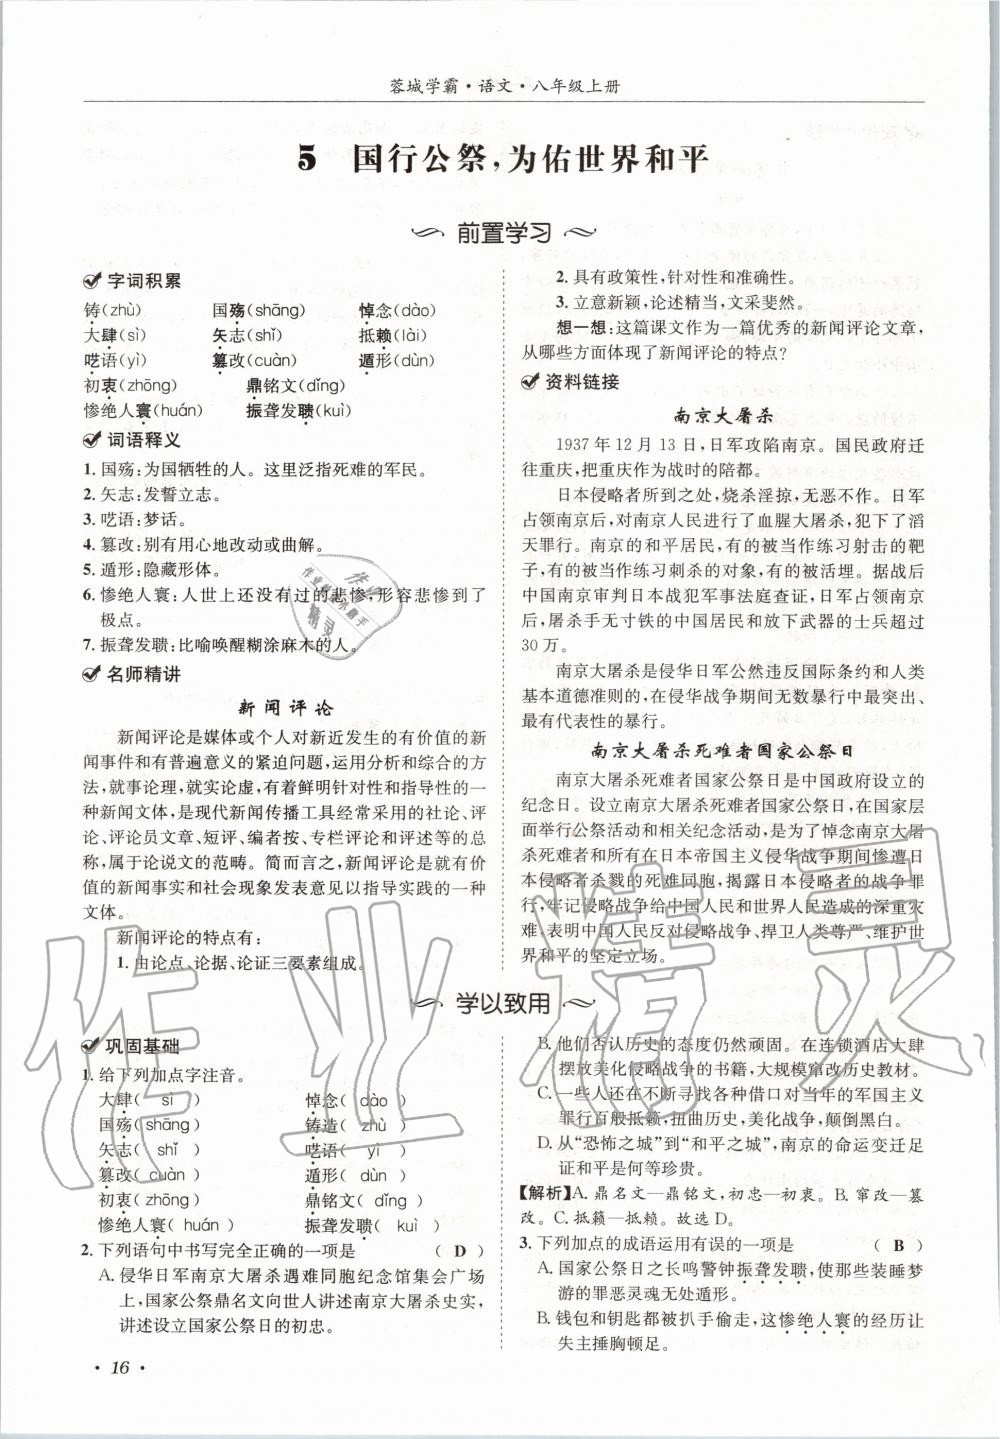 蓉城学霸·语文·八年级上册
5 国行公祭,为佑世界和平
前置学习
字词积累
铸(zhù) 国殇(shāng) 悼念(dào)
大肆(sì) 矢志(shǐ) 抵赖(lài)
呓语(yì) 篡改(cuàn) 遁形(dùn)
初衷(zhōng) 鼎铭文(dǐng)
惨绝人寰(huán) 振聋发聩(kuì)
词语释义
1. 国殇:为国牺牲的人。这里泛指死难的军民。
2. 矢志:发誓立志。
3. 呓语:梦话。
4. 篡改:别有用心地改动或曲解。
5. 遁形:隐藏形体。
6. 惨绝人寰:人世上还没有过的悲惨,形容悲惨到了
极点。
7. 振聋发聩:比喻唤醒糊涂麻木的人。
名师精讲
新闻评论
新闻评论是媒体或个人对新近发生的有价值的新
闻事件和有普遍意义的紧迫问题,运用分析和综合的方
法,就事论理,就实论虚,有着鲜明针对性和指导性的一
种新闻文体,是现代新闻传播工具经常采用的社论、评
论、评论员文章、短评、编者按、专栏评论和评述等的总
称,属于论说文的范畴。简而言之,新闻评论就是就有价
值的新闻事实和社会现象发表意见以指导实践的一种
文体。
新闻评论的特点有:
1. 由论点、论据、论证三要素组成。
2. 具有政策性,针对性和准确性。
3. 立意新颖,论述精当,文采斐然。
想一想:这篇课文作为一篇优秀的新闻评论文章,
从哪些方面体现了新闻评论的特点?
资料链接
南京大屠杀
1937 年 12 月 13 日,日军攻陷南京。国民政府迁
往重庆,把重庆作为战时的陪都。
日本侵略者所到之处,烧杀淫掠,无恶不作。日军
占领南京后,对南京人民进行了血腥大屠杀,犯下了滔
天罪行。南京的和平居民,有的被当作练习射击的靶
子,有的被当作练习刺杀的对象,有的被活埋。据战后
中国南京审判日本战犯军事法庭查证,日军占领南京
后,屠杀手无寸铁的中国居民和放下武器的士兵超过
30 万。
南京大屠杀是侵华日军公然违反国际条约和人类
基本道德准则的,在侵华战争期间无数暴行中最突出、
最有代表性的暴行。
南京大屠杀死难者国家公祭日
南京大屠杀死难者国家公祭日是中国政府设立的
纪念日。设立南京大屠杀死难者国家公祭日,在国家层
面举行公祭活动和相关纪念活动,是为了悼念南京大屠
杀死难者和所有在日本帝国主义侵华战争期间惨遭日
本侵略者杀戮的死难同胞,揭露日本侵略者的战争罪
行,牢记侵略战争给中国人民和世界人民造成的深重灾
难,表明中国人民反对侵略战争、捍卫人类尊严、维护世
界和平的坚定立场。
学以致用
巩固基础
1. 给下列加点字注音。
大肆( sì ) 悼念( dào )
国殇( shāng ) 铸造( zhù )
矢志( shǐ ) 呓语( yì )
篡改( cuàn ) 遁形( dùn )
初衷( zhōng ) 鼎铭文( dǐng )
惨绝人寰( huán ) 振聋发聩( kuì )
2. 下列语句中书写完全正确的一项是 ( D )
A. 侵华日军南京大屠杀遇难同胞纪念馆集会广场
上,国家公祭鼎名文向世人讲述南京大屠杀史实,
讲述设立国家公祭日的初忠。
B. 他们否认历史的态度仍然顽固。在连锁酒店大肆
摆放美化侵略战争的书籍,大规模窜改历史教材。
C. 一些人还在不断寻找各种借口对当年的军国主义
罪行百般抵籁,扭曲历史,美化战争,颠倒黑白。
D. 从“恐怖之城”到“和平之城”,南京的命运变迁足
证和平是何等珍贵。
【解析】A. 鼎名文—鼎铭文,初忠—初衷。B. 窜改—篡
改。C. 抵籁—抵赖。故选 D。
3. 下列加点的成语运用有误的一项是 ( B )
A. 国家公祭日之长鸣警钟振聋发聩,使那些装睡梦
游的罪恶灵魂无处遁形。
B. 钱包和钥匙都被扒手偷走,这惨绝人寰的经历让
失主捶胸顿足。
· 16 ·
作业精灵